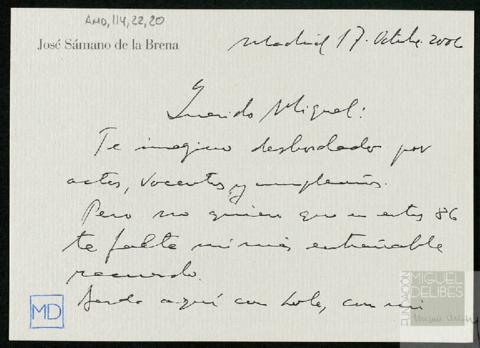 AMD,114,22,20
José Sámano de la Brena
Madrid 17. Octubre. 2006
Querido Miguel:
Te imagino desbordado por
actos, vocentos y cumpleaños.
Pero no quiero que en estos 86
te falte mi más entrañable
recuerdo.
Ando aquí con Lola, con mi
MD
FUNDACIÓN
MIGUEL
DELIBES